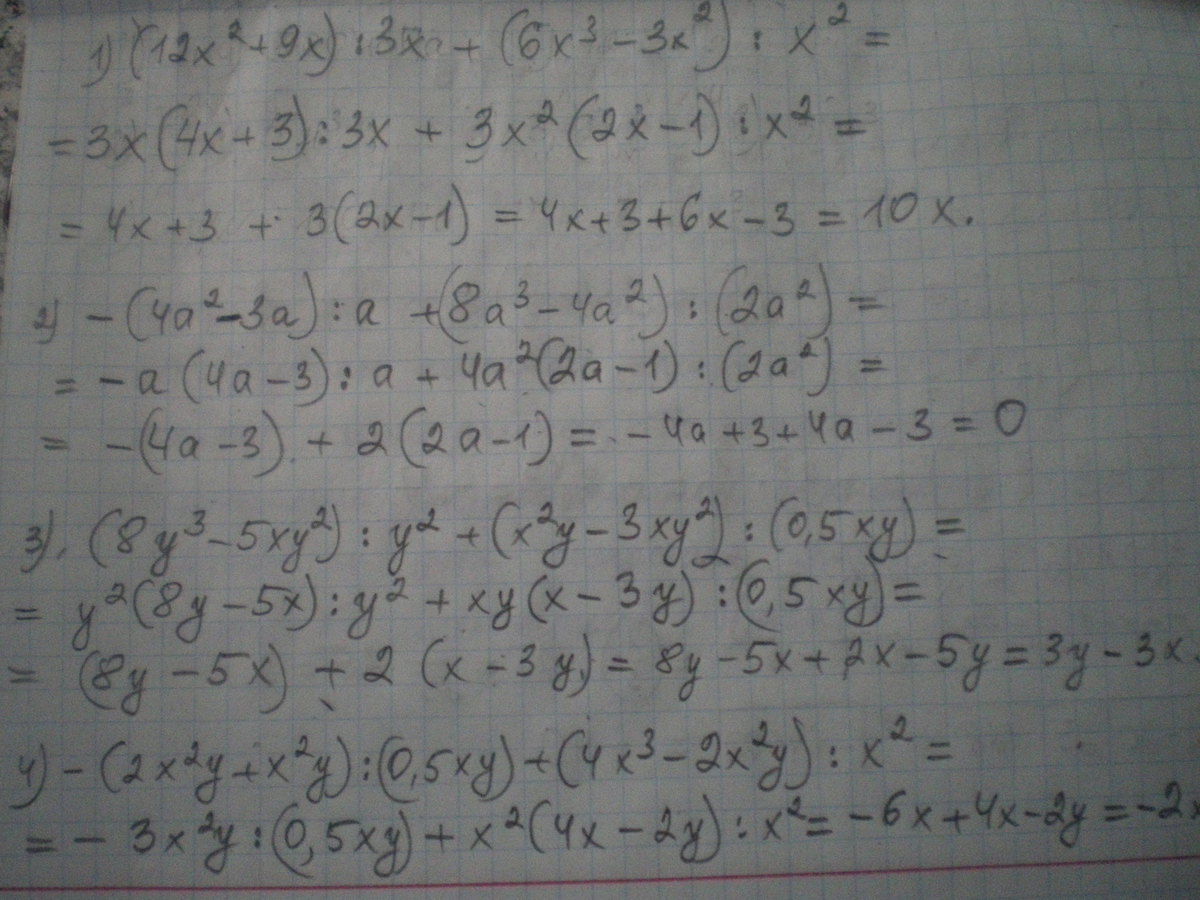 1) (12x² + 9x) : 3x + (6x³ - 3x²) : x² =
= 3x (4x + 3) : 3x + 3x² (2x - 1) : x² =
= 4x + 3 + 3(2x - 1) = 4x + 3 + 6x - 3 = 10x.
2) - (4a² - 3a) : a + (8a³ - 4a²) : (2a²) =
= - a (4a - 3) : a + 4a² (2a - 1) : (2a²) =
= - (4a - 3) + 2 (2a - 1) = - 4a + 3 + 4a - 3 = 0
3). (8y³ - 5xy²) : y² + (x²y - 3xy²) : (0,5xy) =
= y² (8y - 5x) : y² + xy (x - 3y) : (0,5xy) =
= (8y - 5x) + 2 (x - 3y) = 8y - 5x + 2x - 5y = 3y - 3x.
4) - (2x²y + x²y) : (0,5xy) + (4x³ - 2x²y) : x² =
= - 3x²y : (0,5xy) + x² (4x - 2y) : x² = - 6x + 4x - 2y = - 2x